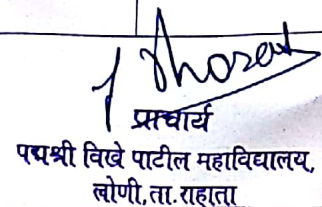 प्राचार्य
पद्मश्री विखे पाटील महाविद्यालय,
लोणी, ता. राहाता